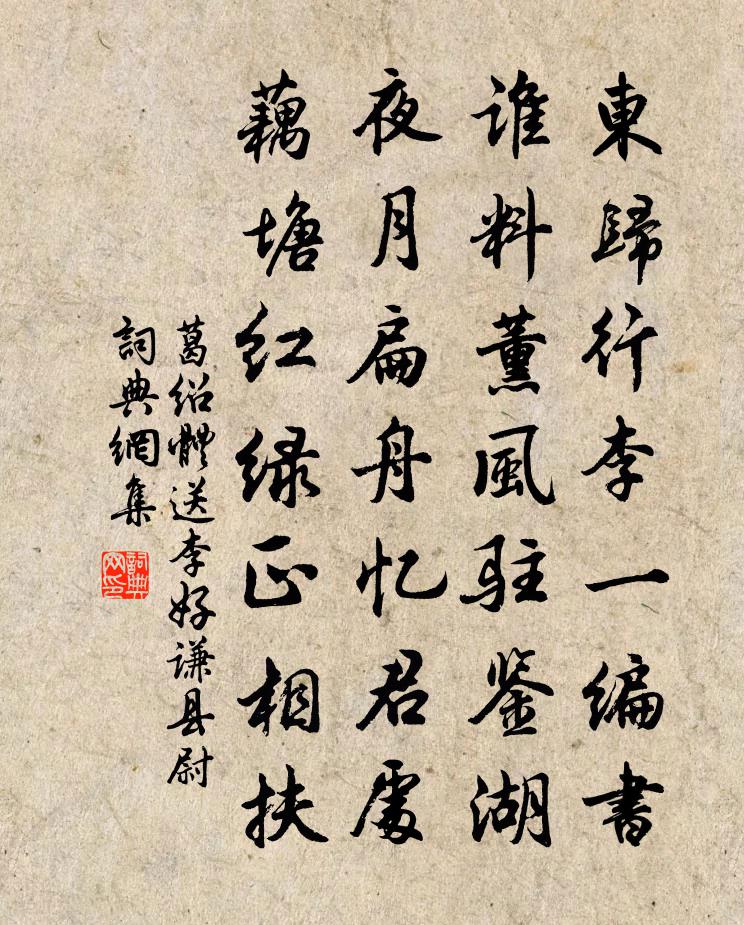 東歸行李一编書
谁料薰風駐鉴湖
夜月扁舟忆君處
藕塘红绿正相扶
葛绍體送李好谦县尉
詞典網集
詞典网印